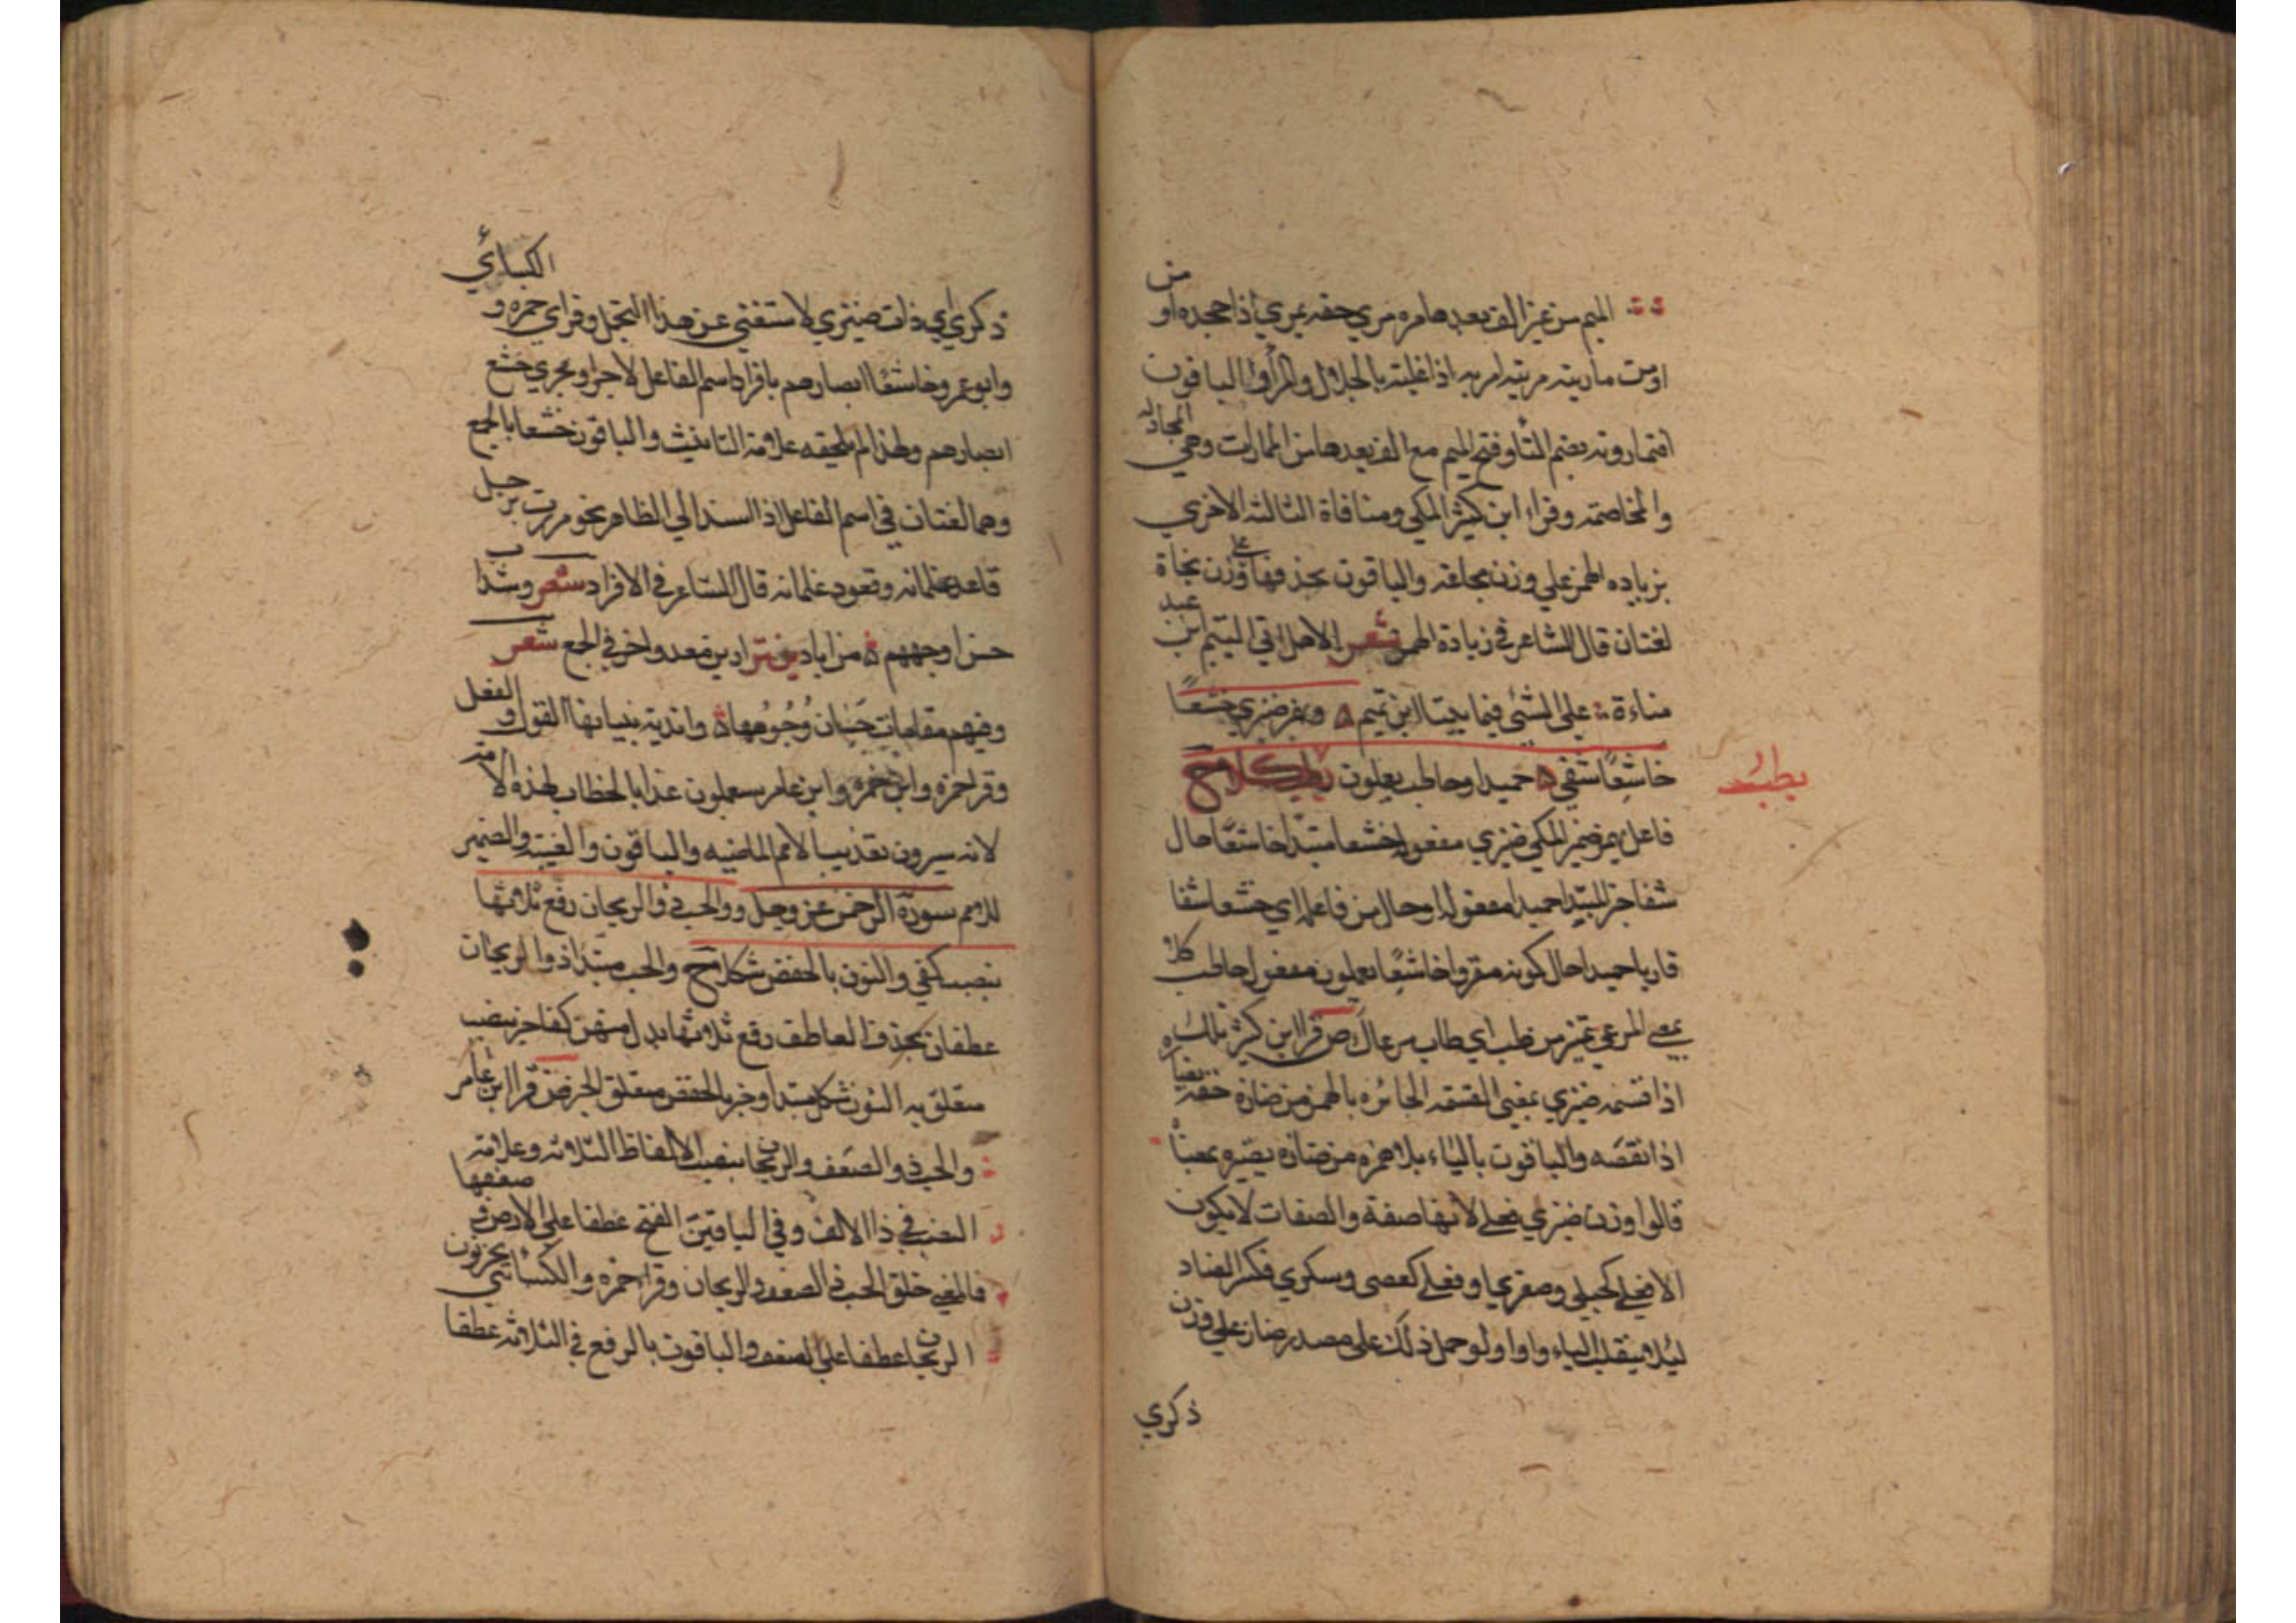 الميم من غير الف بعدها من مري حقه يمري اذا جحده او
من
او من ماريته مريته امريه اذا غلبته بالجدال والمرآ والباقون
افتمارونه بضم التا وفتح الميم مع الف بعدها من المارات وهي
المجادلة
والمخاصمة وقراء ابن كثير المكي ومنافاة الثالثة الاخري
بزياده الهمز علي وزن مجاعة والباقون بحذفها علي وزن نجاة
لغتان قال الشاعر في زيادة الهمز شعر الاهل اتي التيم ابن
عبد
مناءة علي الشئي فيما بيننا ابن تميم ويهمز ضيزي خشعا
خاشعا شفي حميدا وخاطب يعلمون
يطب
فاعل يهمز ضمير المكي ضيزي مفعوله خشعا مبتدا خاشعا حال
شفا خبر المبتدا حميدا مفعوله او حال من فاعله اي خشعا شفا
قاريا حميدا حال كونه مقروا خاشعا تعلمون مفعول خاطب
كلا
بمعني المرعي تميز من طب اي طاب مرعاك ص قرا ابن كثير تلك
اذا قسمة ضيزي بمعني القسمة الجائره بالهمز من ضازه حقه
اذا نقصه والباقون بالياء بلا همزه من ضازه يضيزه بمعنا
قالوا وزن ضيزي فعلي لانها صفة والصفات لا يكون
الا فعلي كحبلي وصغري او فعلي كعصي وسكري فكسر الضاد
ليلا ينقلب الياء واوا ولو حمل ذلك علي مصدر ضاز علي وزن
ذكري
الكسائي
ذكري اي ذات ضيزي لاستغني عن هذا التحمل وقراي حمزه و
وابو عمرو خاشعا ابصارهم بافراد اسم الفاعل لاجراوه مجري خشع
ابصارهم ولهذا لم يلحقه علامة التانيث والباقون خشعا بالجمع
وهما لغتان في اسم الفاعل اذا اسند الي الظاهر نحو مررت برجل
قاعد غلمانه وقعود غلمانه قال الشاعر في الافراد شعر وشبا
حسن اوجههم من اياد بن نزار بن معد واخر في الجمع شعر
وفيهم مقامات حسان وجوهها واندية ينبيانها القول و
الفعل
وقرا حمزه وابن حمزه وابن عامر سيعلمون غدا بالخطاب لهذه الامة
لانه سيرون تعذيب الامم الماضيه والباقون والغيبة والضمير
للامم سورة الرحمن عز وجل ووالحب ذو الريحان رفع ثلاثها
بنصب كفي والنون بالخفض شكلا ح والحب مبتدا ذو الريحان
عطفان بحذف العاطف رفع ثلاثها بدل منهن كفا خبر بنصب
متعلق به النون شكل مبتدا وخبر بالخفض متعلق الخبر ص قرا ابن عامر
والحب ذو العصف والريحان بنصب الالفاظ الثلاثه وعلامة
النصب في ذا الالف وفي الباقيين الفتح عطفا علي الارض و
فالمعني خلق الحب ذا العصف والريحان وقرا حمزه والكسائي
الريحان عطفا علي العصف والباقون بالرفع في الثلاثه عطفا